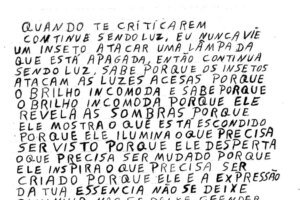 QUANDO TE CRITICAREM
CONTINUE SENDO LUZ, EU NUNCA VIE
UM INSETO ATACAR UMA LÂMPADA
QUE ESTÁ APAGADA, ENTÃO CONTINUA
SENDO LUZ, SABE PORQUE OS INSETOS
ATACAM AS LUZES ACESAS PORQUE
O BRILHO INCOMODA E SABE PORQUE
O BRILHO INCOMODA PORQUE ELE
REVELA AS SOMBRAS PORQUE
ELE MOSTRA O QUE ESTÁ ESCONDIDO
PORQUE ELE ILUMINA O QUE PRECISA
SER VISTO PORQUE ELE DESPERTA
O QUE PRECISA SER MUDADO PORQUE
ELE INSPIRA O QUE PRECISA SER
CRIADO PORQUE ELE E A EXPRESSÃO
DA TUA ESSENCIA NÃO SE DEIXE